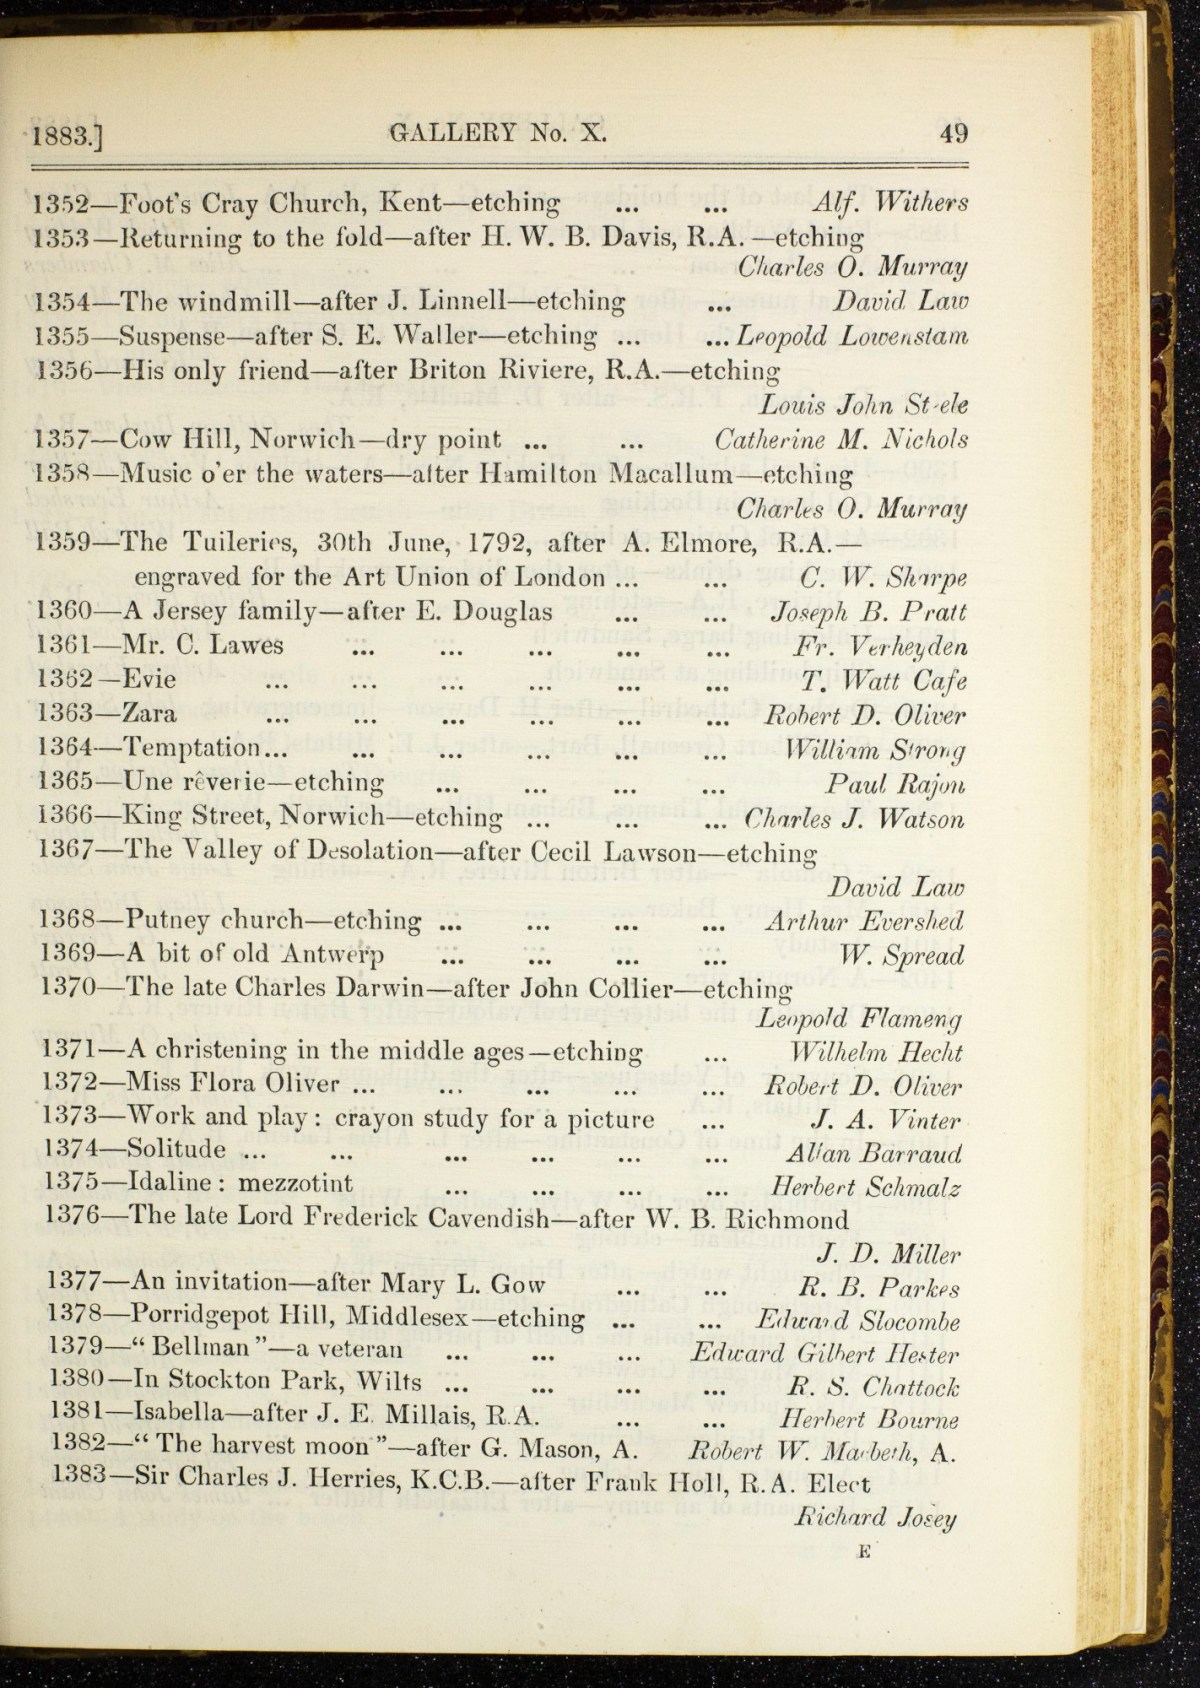 1883.] GALLERY No. X. 49
1352—Foot's Cray Church, Kent—etching ... ... Alf. Withers
1353—Returning to the fold—after H. W. B. Davis, R.A.—etching
Charles O. Murray
1354—The windmill—after J. Linnell—etching ... David Law
1355—Suspense—after S. E. Waller—etching ... ... Leopold Lowenstam
1356—His only friend—after Briton Riviere, R.A.—etching
Louis John Steele
1357—Cow Hill, Norwich—dry point ... ... Catherine M. Nichols
1358—Music o'er the waters—after Hamilton Macallum—etching
Charles O. Murray
1359—The Tuileries, 30th June, 1792, after A. Elmore, R.A.—
engraved for the Art Union of London ... ... C. W. Sharpe
1360—A Jersey family—after E. Douglas ... ... Joseph B. Pratt
1361—Mr. C. Lawes ... ... ... ... ... Fr. Verheyden
1362—Evie ... ... ... ... ... ... T. Watt Cafe
1363—Zara ... ... ... ... ... ... Robert D. Oliver
1364—Temptation... ... ... ... ... ... William Strong
1365—Une rêverie—etching ... ... ... ... Paul Rajon
1366—King Street, Norwich—etching ... ... ... Charles J. Watson
1367—The Valley of Desolation—after Cecil Lawson—etching
David Law
1368—Putney church—etching ... ... ... ... Arthur Evershed
1369—A bit of old Antwerp ... ... ... ... W. Spread
1370—The late Charles Darwin—after John Collier—etching
Leopold Flameng
1371—A christening in the middle ages—etching ... Wilhelm Hecht
1372—Miss Flora Oliver ... ... ... ... ... Robert D. Oliver
1373—Work and play: crayon study for a picture ... J. A. Vinter
1374—Solitude ... ... ... ... ... ... Allan Barraud
1375—Idaline: mezzotint ... ... ... ... Herbert Schmalz
1376—The late Lord Frederick Cavendish—after W. B. Richmond
J. D. Miller
1377—An invitation—after Mary L. Gow ... ... R. B. Parkes
1378—Porridgepot Hill, Middlesex—etching ... ... Edward Slocombe
1379—“Bellman”—a veteran ... ... ... Edward Gilbert Hester
1380—In Stockton Park, Wilts ... ... ... ... R. S. Chattock
1381—Isabella—after J. E. Millais, R.A. ... ... Herbert Bourne
1382—“The harvest moon”—after G. Mason, A. Robert W. Macbeth, A.
1383—Sir Charles J. Herries, K.C.B.—after Frank Holl, R.A. Elect
Richard Josey
E